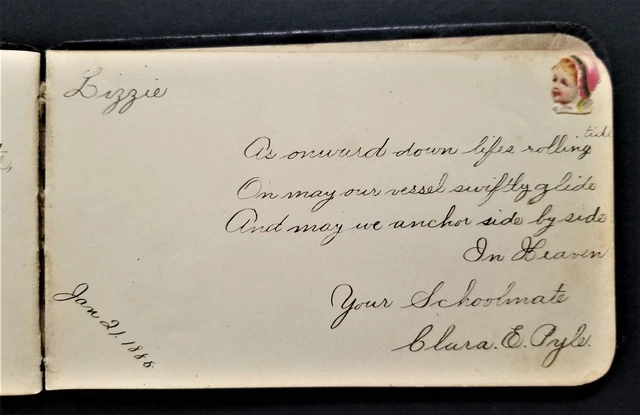 Lizzie
As onward down lifes rolling tide
On may our vessel swiftly glide
And may we anchor side by side
In Heaven
Your Schoolmate
Clara. E. Pyle.
Jan 21, 1886